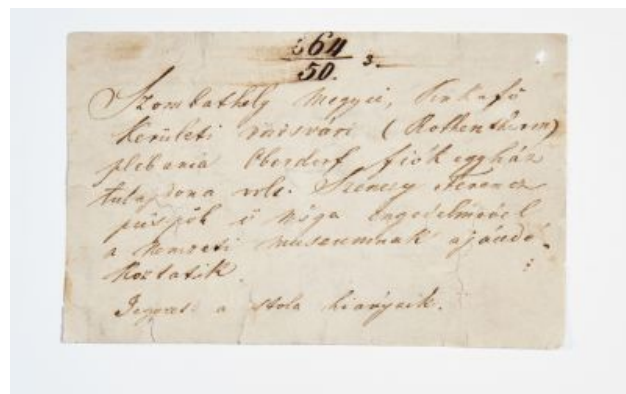 64
50. 3.
Szombathely megyei, Pinkafő
kerületi vörösvári (Rothenthurm)
plebania Oberdorf fiók egyház
tulajdona volt. Szenczy Ferencz
püspök ő nsga engedelmével
a Nemzeti museumnak ajándé-
koztatik.
Jegyzet: a stola hiányzik.